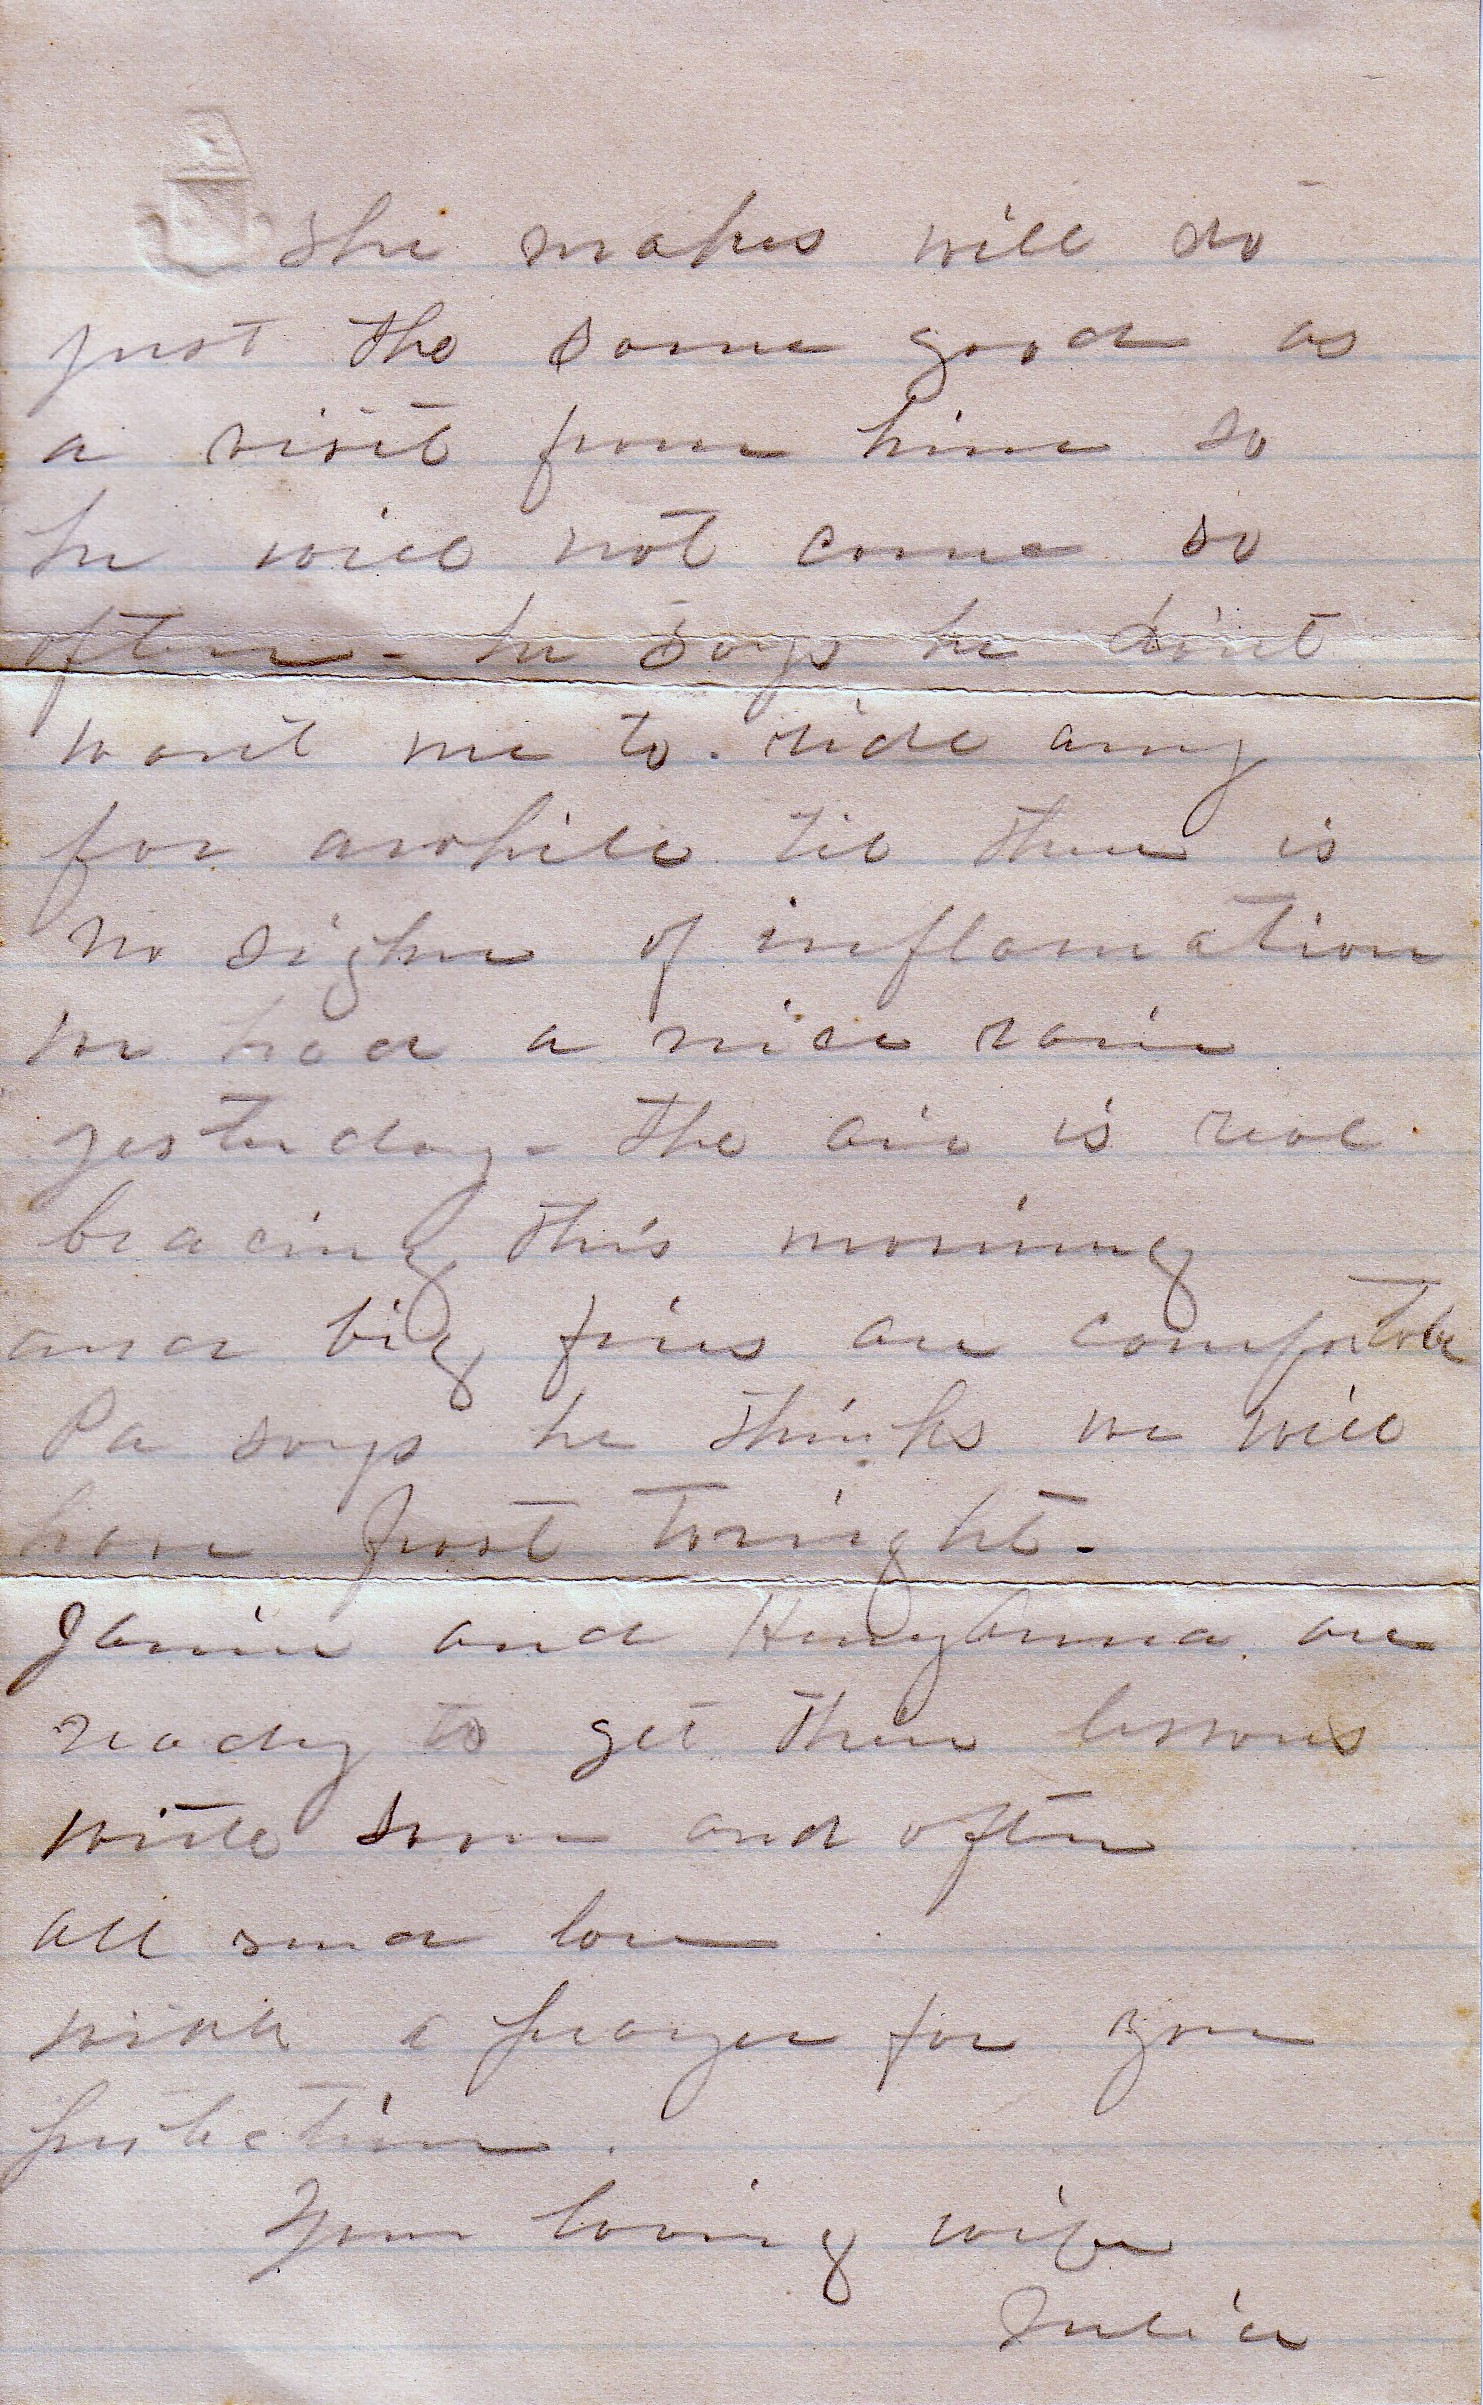 she makes will do
just the same good as
a visit from him so
he will not come so
often - he says he dont
want me to ride any
for awhile til there is
no sighn of inflamation
we had a nice rain
yesterday - the air is real
bracing this morning
and big fires are comfortable
Pa says he thinks we will
have frost tonight -
Janie and are
ready to get their lessons
write soon and often
all send love
with a prayer for your
protection.
Your loving wife
Julia